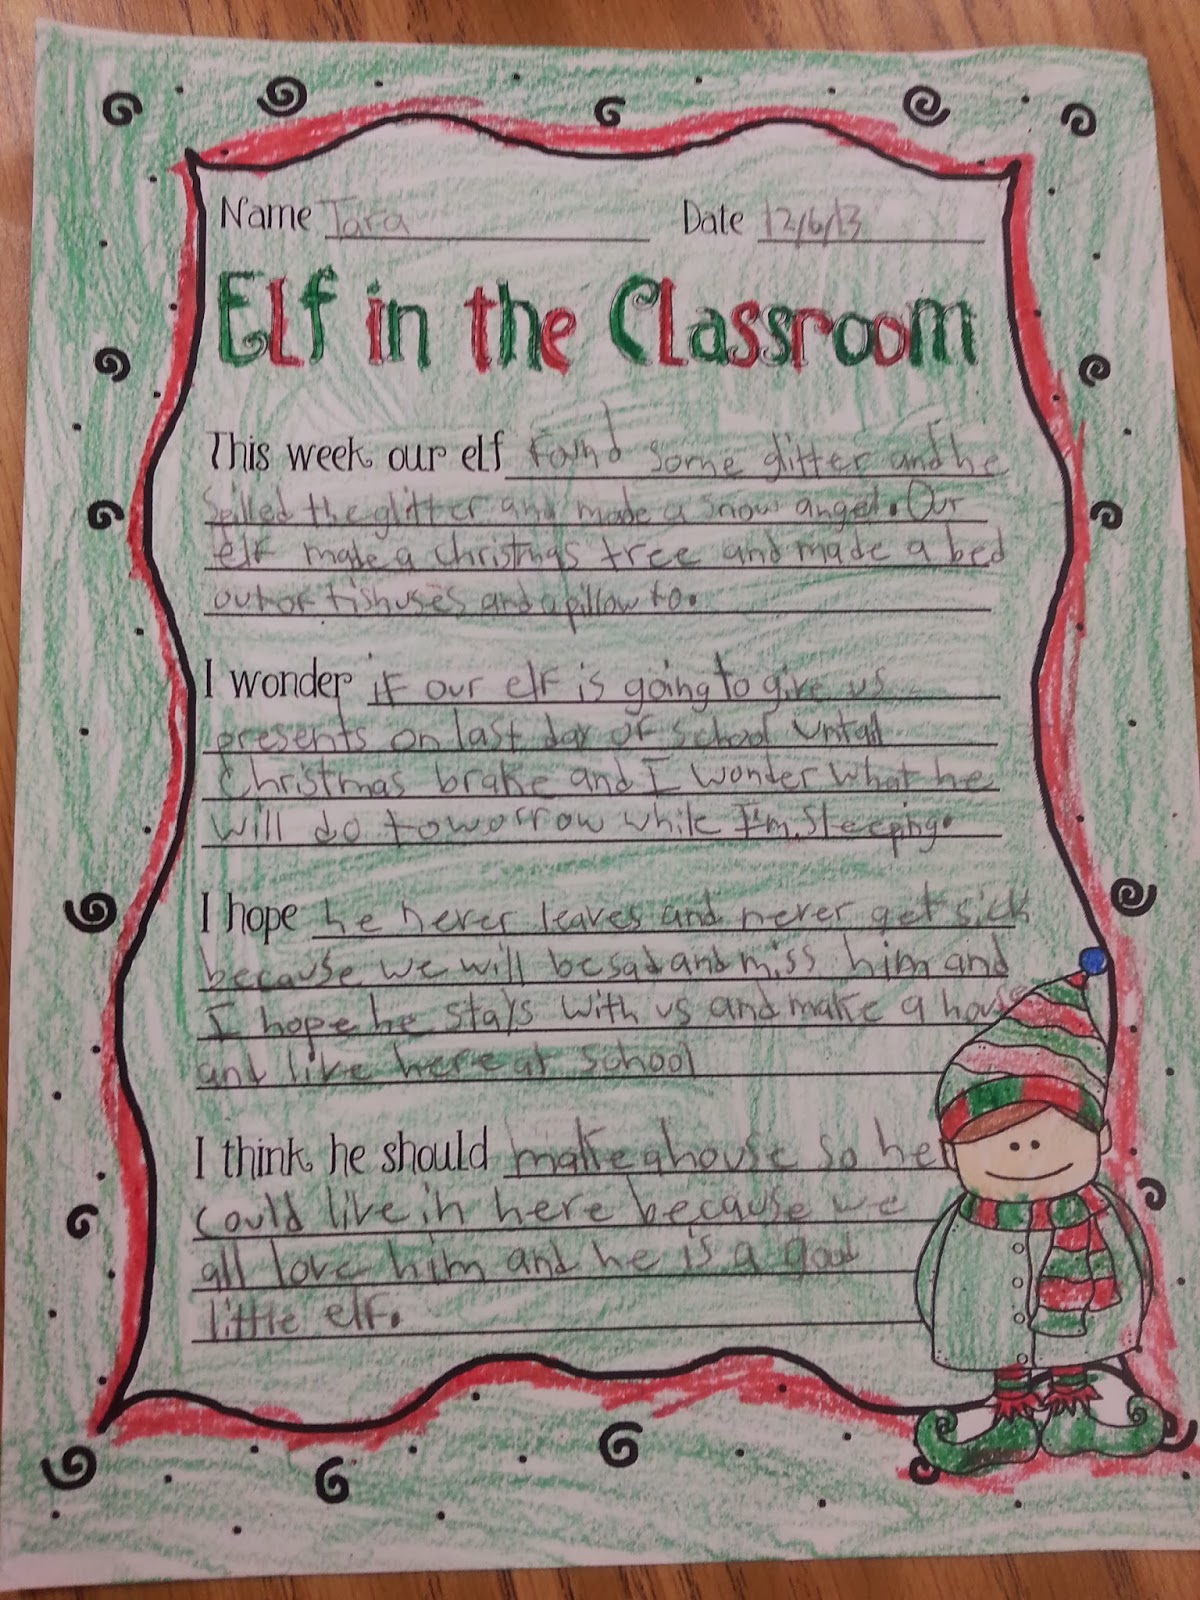 Name Tara Date 12/6/13
Elf in the Classroom
This week our elf found some glitter and he
spilled the glitter and made a snow angel. Our
elf made a christmas tree and made a bed
out of tishuses and a pillow to.
I wonder if our elf is going to give us
presents on last day of school untall
Christmas brake and I wonder what he
will do toworrow while I'm sleeping.
I hope he never leaves and never get sick
because we will be sad and miss him and
I hope he stays with us and make a house
and live here at school
I think he should make a house so he
could live in here because we
all love him and he is a good
little elf.